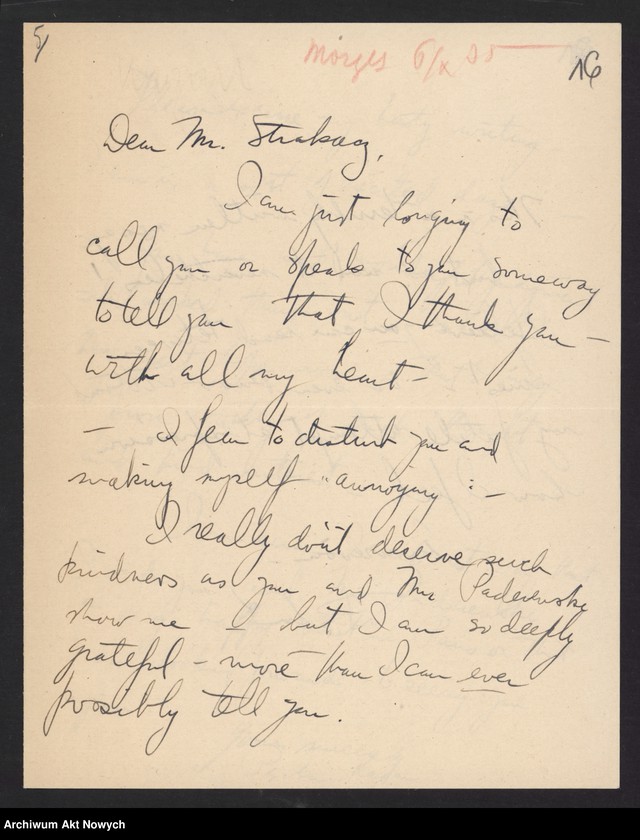 5/
Morges 6/X 35
16
Dear Mr. Strakacz,
I am just longing to
call you or speak to you someway
to tell you that I thank you –
with all my heart –
– I fear to disturb you and
making myself "annoying": –
I really don't deserve such
kindness as you and Mr Paderewski
show me – but I am so deeply
grateful – more than I can ever
possibly tell you.
Archiwum Akt Nowych